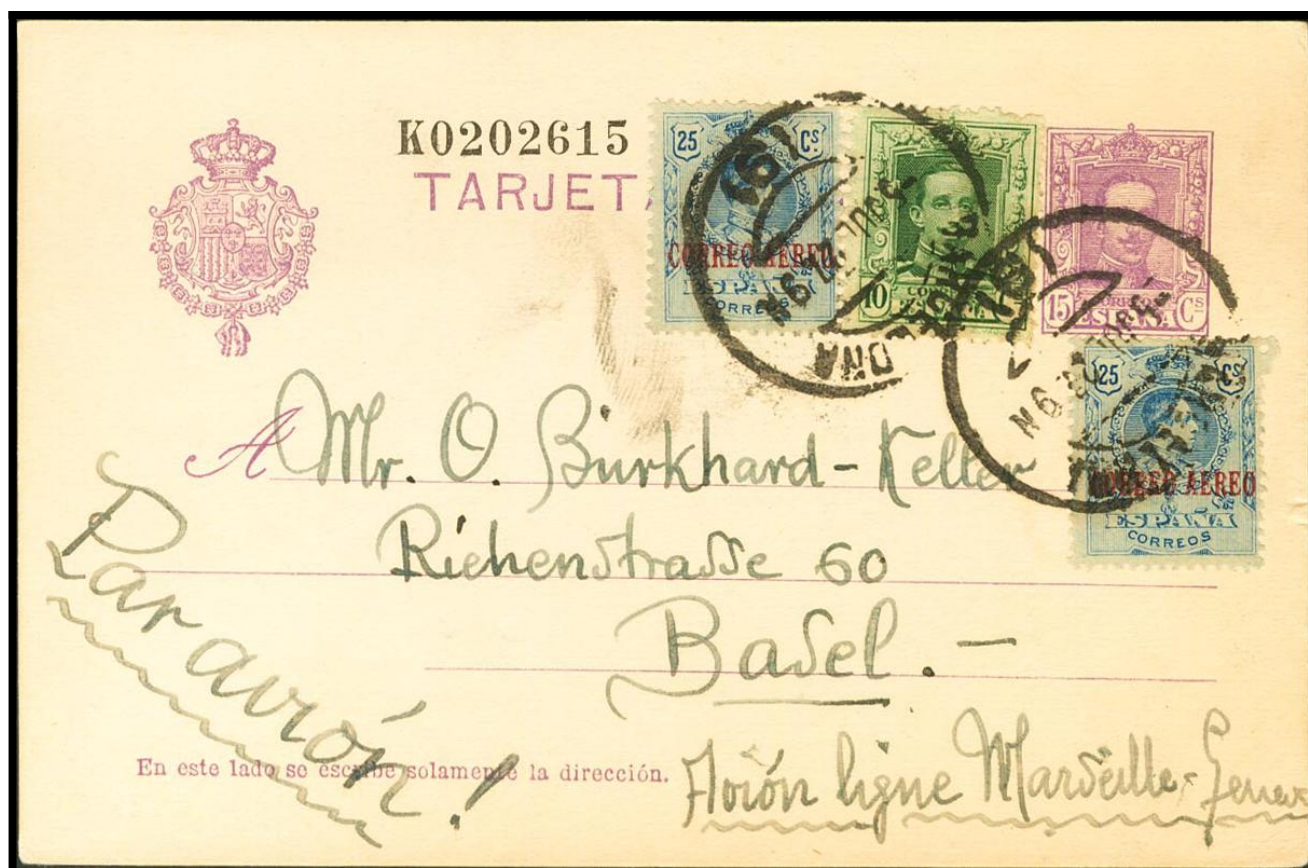 K0202615
TARJETA
25 Cs
CORREO AEREO
ESPAÑA
CORREOS
10
15 ESPAÑA Cs
25 Cs
CORREO AEREO
ESPAÑA
CORREOS
A Mr. O. Burkhard-Keller
Riehenstrasse 60
Basel.-
Par avión!
En este lado se escribe solamente la dirección.
Avión ligne Marseille-Geneve